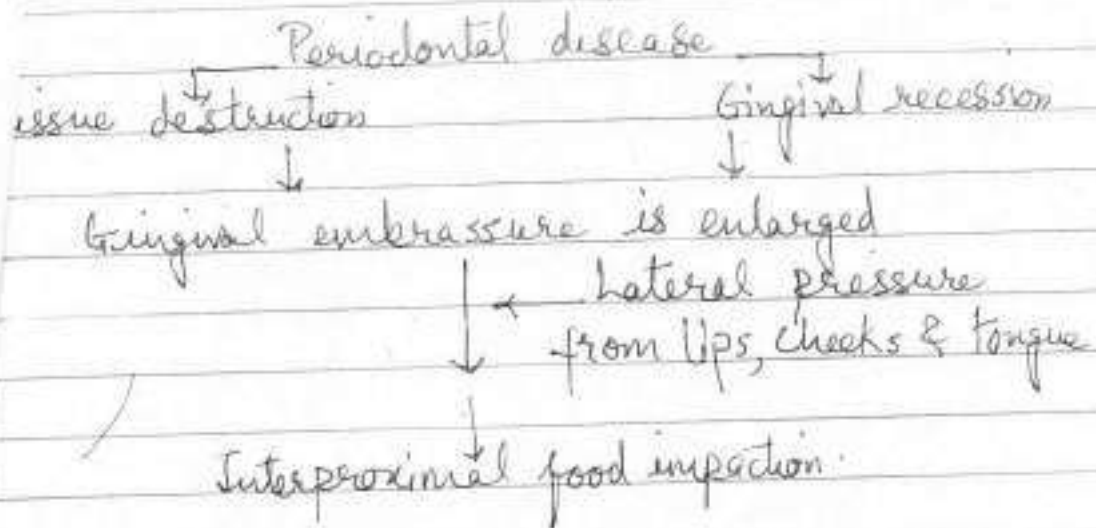 Periodontal disease
issue destruction Gingival recession
Gingival embrassure is enlarged
Lateral pressure
from lips, cheeks & tongue
Interproximal food impaction.